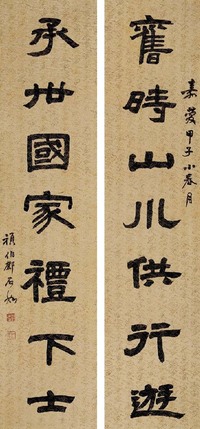 嘉慶甲子小春月
舊時山川供行遊
承世國家禮下士
頑伯鄧石如